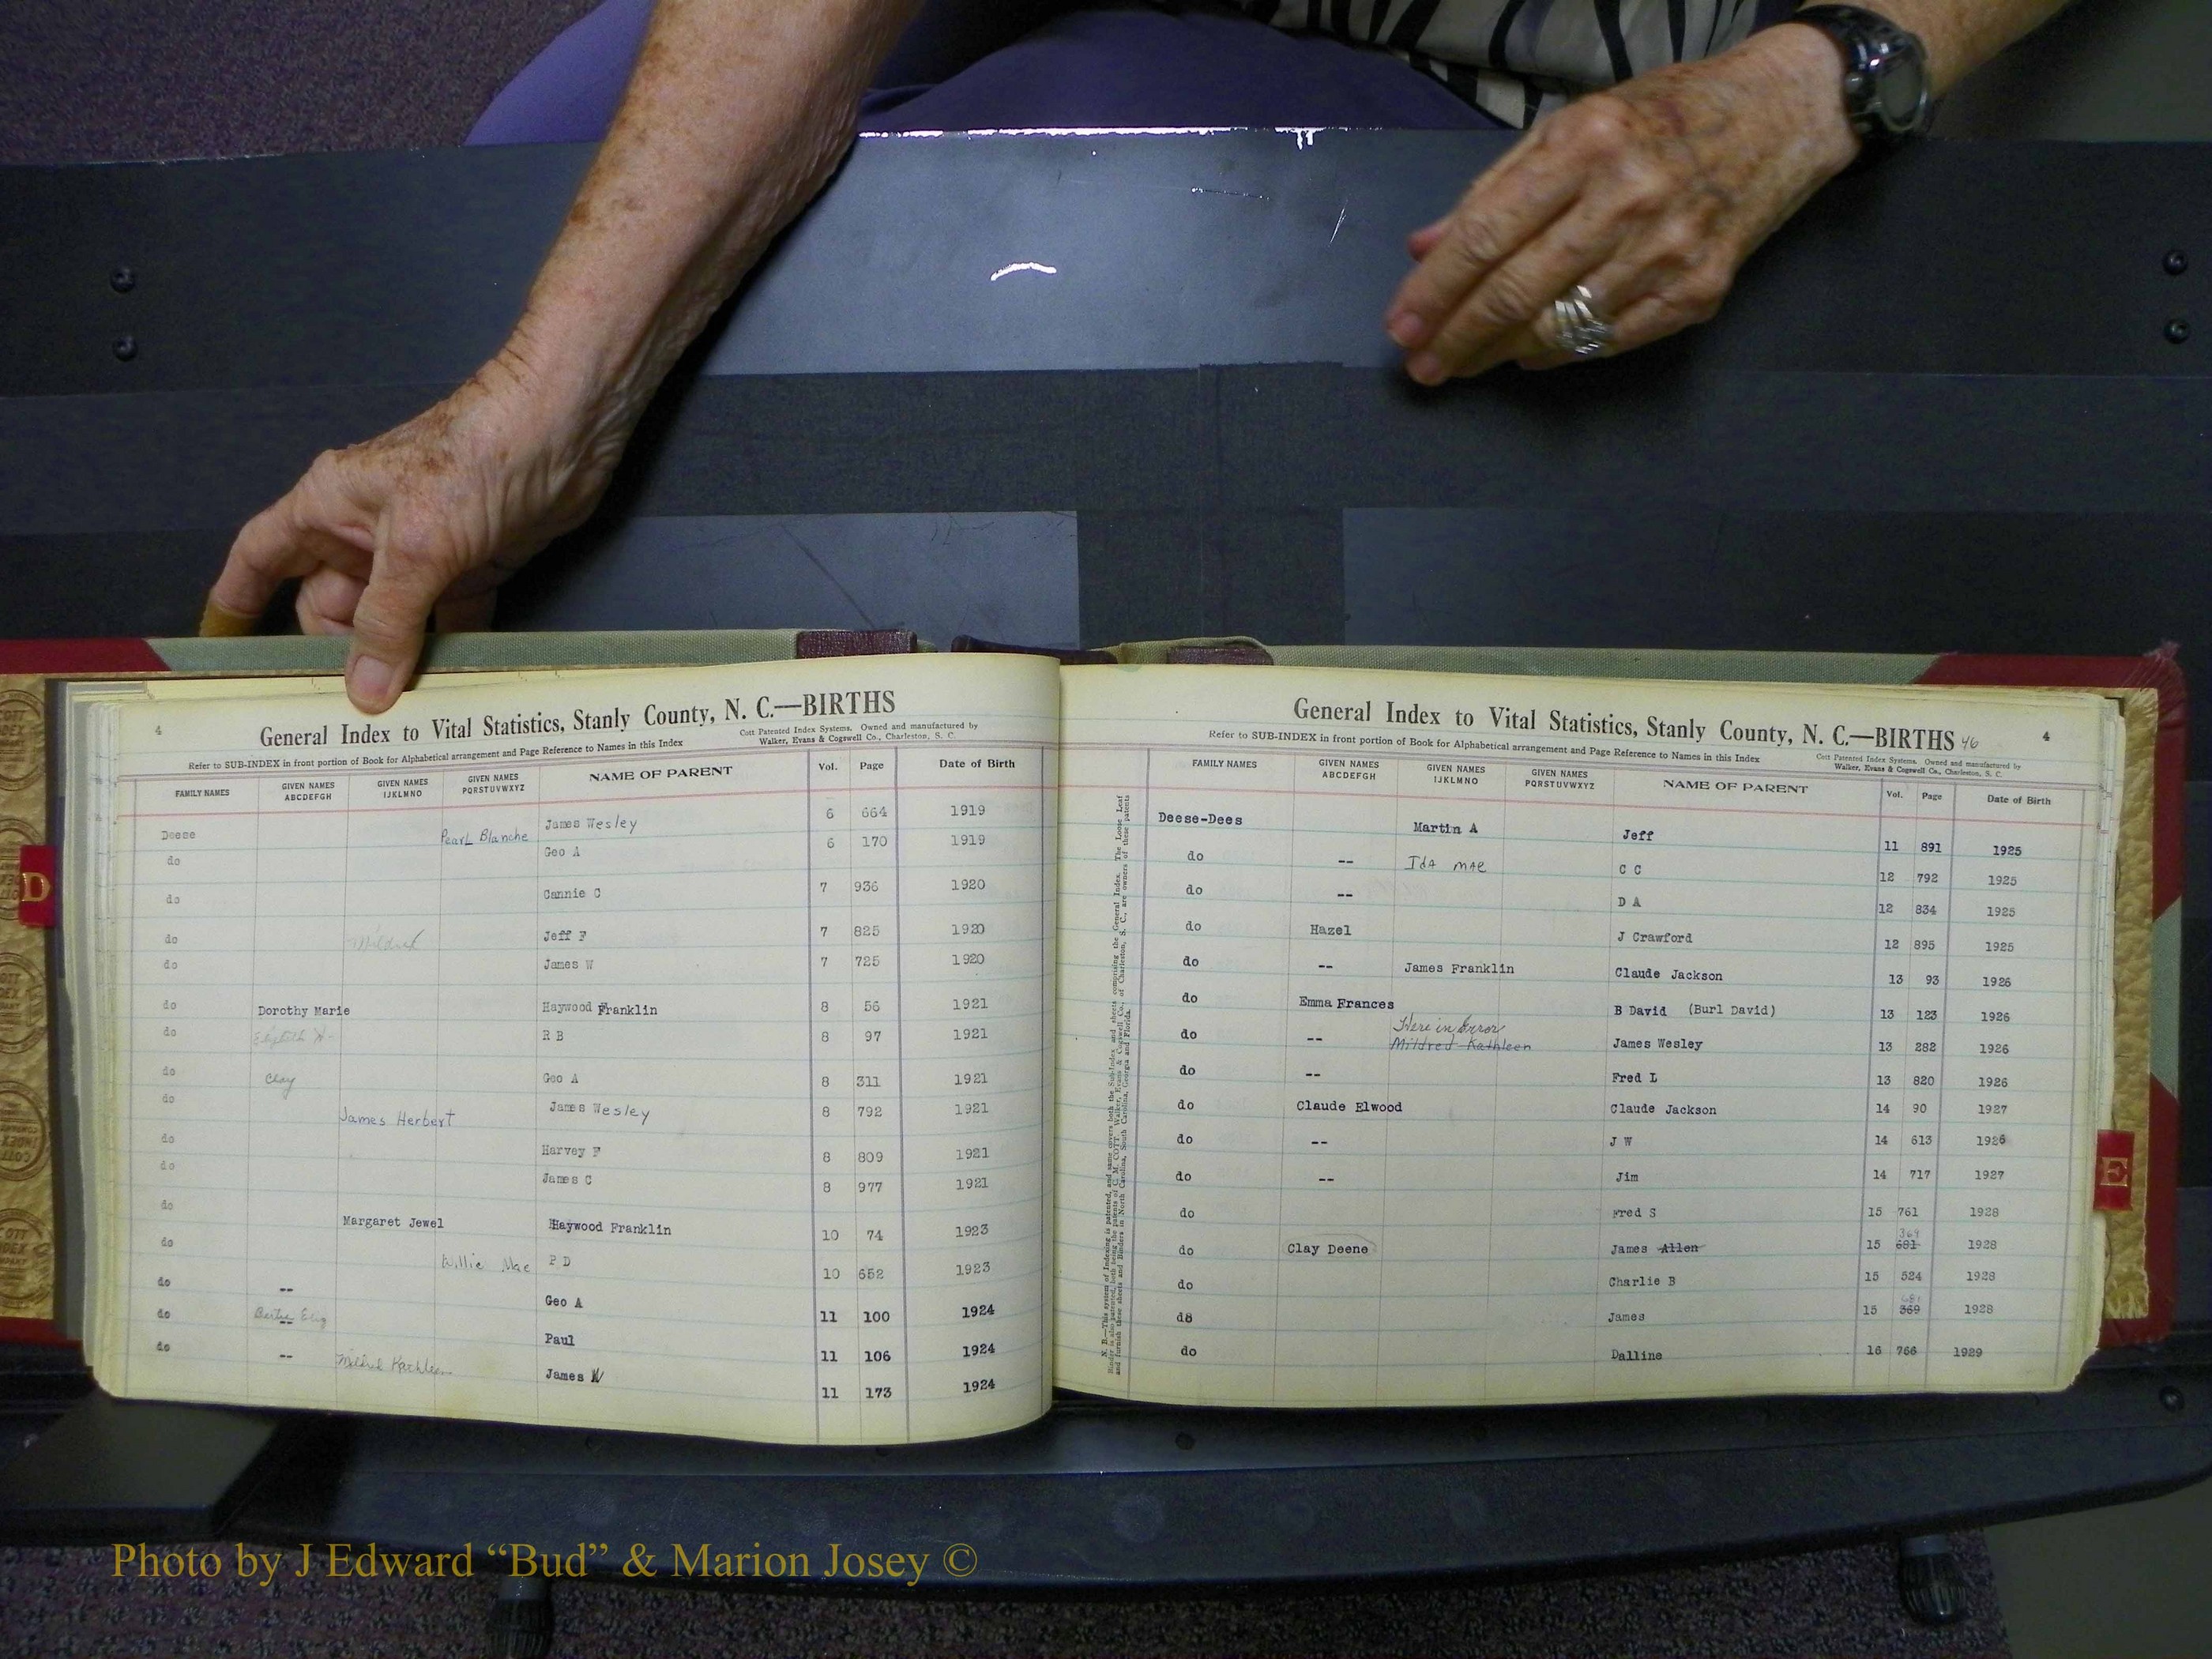 4
General Index to Vital Statistics, Stanly County, N. C.—BIRTHS
Refer to SUB-INDEX in front portion of Book for Alphabetical arrangement and Page Reference to Names in this Index
Cott Patented Index Systems. Owned and manufactured by
Walker, Evans & Cogswell Co., Charleston, S. C.
FAMILY NAMES GIVEN NAMES ABCDEFGH GIVEN NAMES IJKLMNO GIVEN NAMES PQRSTUVWXYZ NAME OF PARENT Vol. Page Date of Birth
Deese Pearl Blanche James Wesley 6 664 1919
do Geo A 6 170 1919
do Cannie C 7 936 1920
do Mildred Jeff F 7 825 1920
do James W 7 725 1920
do Dorothy Marie Haywood Franklin 8 56 1921
do R B 8 97 1921
do Clay Geo A 8 311 1921
do James Herbert James Wesley 8 792 1921
do Harvey F 8 809 1921
do James C 8 977 1921
do Margaret Jewel Haywood Franklin 10 74 1923
do Willie Mae P D 10 652 1923
do -- Geo A 11 100 1924
do -- Paul 11 106 1924
do -- Mildred Kathleen James W 11 173 1924
General Index to Vital Statistics, Stanly County, N. C.—BIRTHS 46
4
Refer to SUB-INDEX in front portion of Book for Alphabetical arrangement and Page Reference to Names in this Index
Cott Patented Index Systems. Owned and manufactured by
Walker, Evans & Cogswell Co., Charleston, S. C.
FAMILY NAMES GIVEN NAMES ABCDEFGH GIVEN NAMES IJKLMNO GIVEN NAMES PQRSTUVWXYZ NAME OF PARENT Vol. Page Date of Birth
Deese-Dees Martin A Jeff 11 891 1925
do -- Ida Mae C C 12 792 1925
do -- D A 12 834 1925
do Hazel J Crawford 12 895 1925
do -- James Franklin Claude Jackson 13 93 1926
do Emma Frances B David (Burl David) 13 123 1926
Here in Error
do -- Mildred Kathleen James Wesley 13 282 1926
do -- Fred L 13 820 1926
do Claude Elwood Claude Jackson 14 90 1927
do -- J W 14 613 1926
do -- Jim 14 717 1927
do Fred S 15 761 1928
369
do Clay Deene James Allen 15 681 1928
do Charlie B 15 524 1928
681
d8 James 15 369 1928
do Dalline 16 766 1929
D
E
Photo by J Edward “Bud” & Marion Josey ©